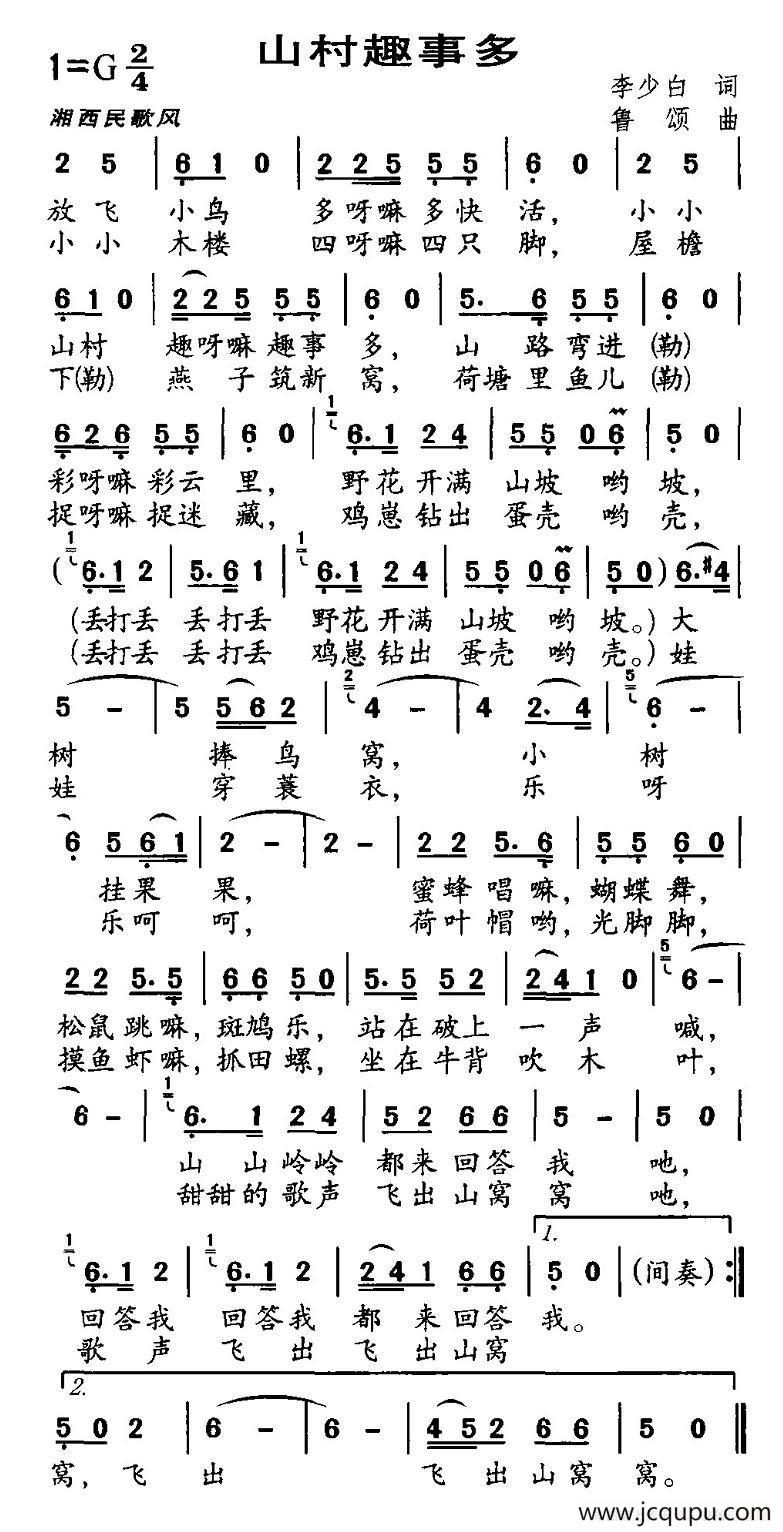 山村趣事多
1=G 2/4
李少白 词
湘西民歌风
鲁 颂 曲
2 5 | 6 1 0 | 2 2 5 5 5 | 6 0 | 2 5 |
放飞 小鸟 多呀嘛多快 活, 小小
小小 木楼 四呀嘛四只 脚, 屋檐
6 1 0 | 2 2 5 5 5 | 6 0 | 5. 6 5 5 | 6 0 |
山村 趣呀嘛趣事 多, 山 路弯进 (勒)
下(勒) 燕 子筑新 窝, 荷塘里鱼儿 (勒)
6 2 6 5 5 | 6 0 | 1 6. 1 2 4 | 5 5 0 6 | 5 0 |
彩呀嘛彩云 里, 野花开满 山坡 哟 坡,
捉呀嘛捉迷 藏, 鸡崽钻出 蛋壳 哟 壳,
( 1 6. 1 2 | 5. 6 1 | 1 6. 1 2 4 | 5 5 0 6 | 5 0 ) 6. #4 |
(丢打丢 丢打丢 野花开满 山坡 哟 坡。) 大
(丢打丢 丢打丢 鸡崽钻出 蛋壳 哟 壳。) 娃
5 - | 5 5 6 2 | 2 4 - | 4 2. 4 | 5 6 - |
树 捧鸟 窝, 小 树
娃 穿蓑 衣, 乐 呀
6 5 6 1 | 2 - | 2 - | 2 2 5. 6 | 5 5 6 0 |
挂果 果, 蜜蜂唱嘛, 蝴蝶舞,
乐呵 呵, 荷叶帽哟, 光脚脚,
2 2 5. 5 | 6 6 5 0 | 5. 5 5 2 | 2 4 1 0 | 5 6 - |
松鼠跳嘛, 斑鸠乐, 站在破上 一 声 喊,
摸鱼虾嘛, 抓田螺, 坐在牛背 吹木 叶,
6 - | 1 6. 1 2 4 | 5 2 6 6 | 5 - | 5 0 |
山 山岭岭 都来回答 我 吔,
甜甜的歌声 飞出山窝 窝 吔,
1.
1 6. 1 2 | 1 6. 1 2 | 2 4 1 6 6 | 5 0 | (间奏) :||
回答我 回答我 都 来回答 我。
歌 声 飞 出 飞 出山窝
2.
5 0 2 | 6 - | 6 - | 4 5 2 6 6 | 5 0 ||
窝, 飞 出 飞 出山窝 窝。
www.jcqupu.com